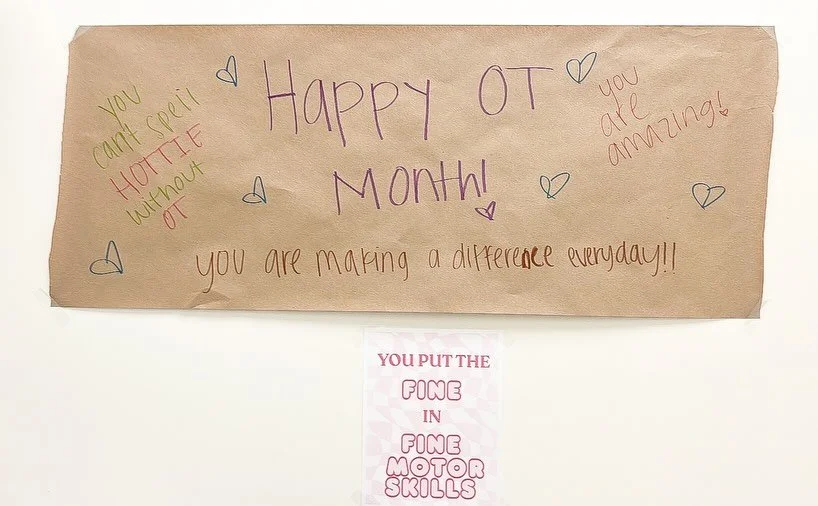 Happy OT
Month!
you
can't spell
HOTTIE
without
OT
you
are
amazing!
you are making a difference everyday!!
YOU PUT THE
FINE
IN
FINE
MOTOR
SKILLS